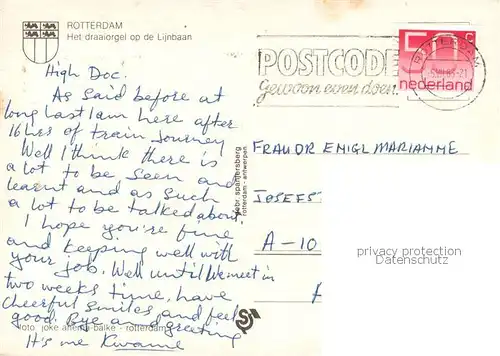 ROTTERDAM
Het draaiorgel op de Lijnbaan
High Doc.
As said before at
long last I am here after
16 hrs of train journey
Well I think there is
a lot to be seen and
learnt and as such
a lot to be talked about.
I hope you're fine
and keeping well with
your job. Well until we meet in
two weeks time, have
cheerful smiles and feel
good. Bye and greeting
It's me Kwame
foto joke - balke - rotterdam
gebr. spanjersberg
rotterdam - antwerpen
POSTCODE
Gewoon even doen.
ROTTERDAM
50c
nederland
FRAU DR EMIGL MARIAMME
JOSEFS
A-10
privacy protection
Datenschutz